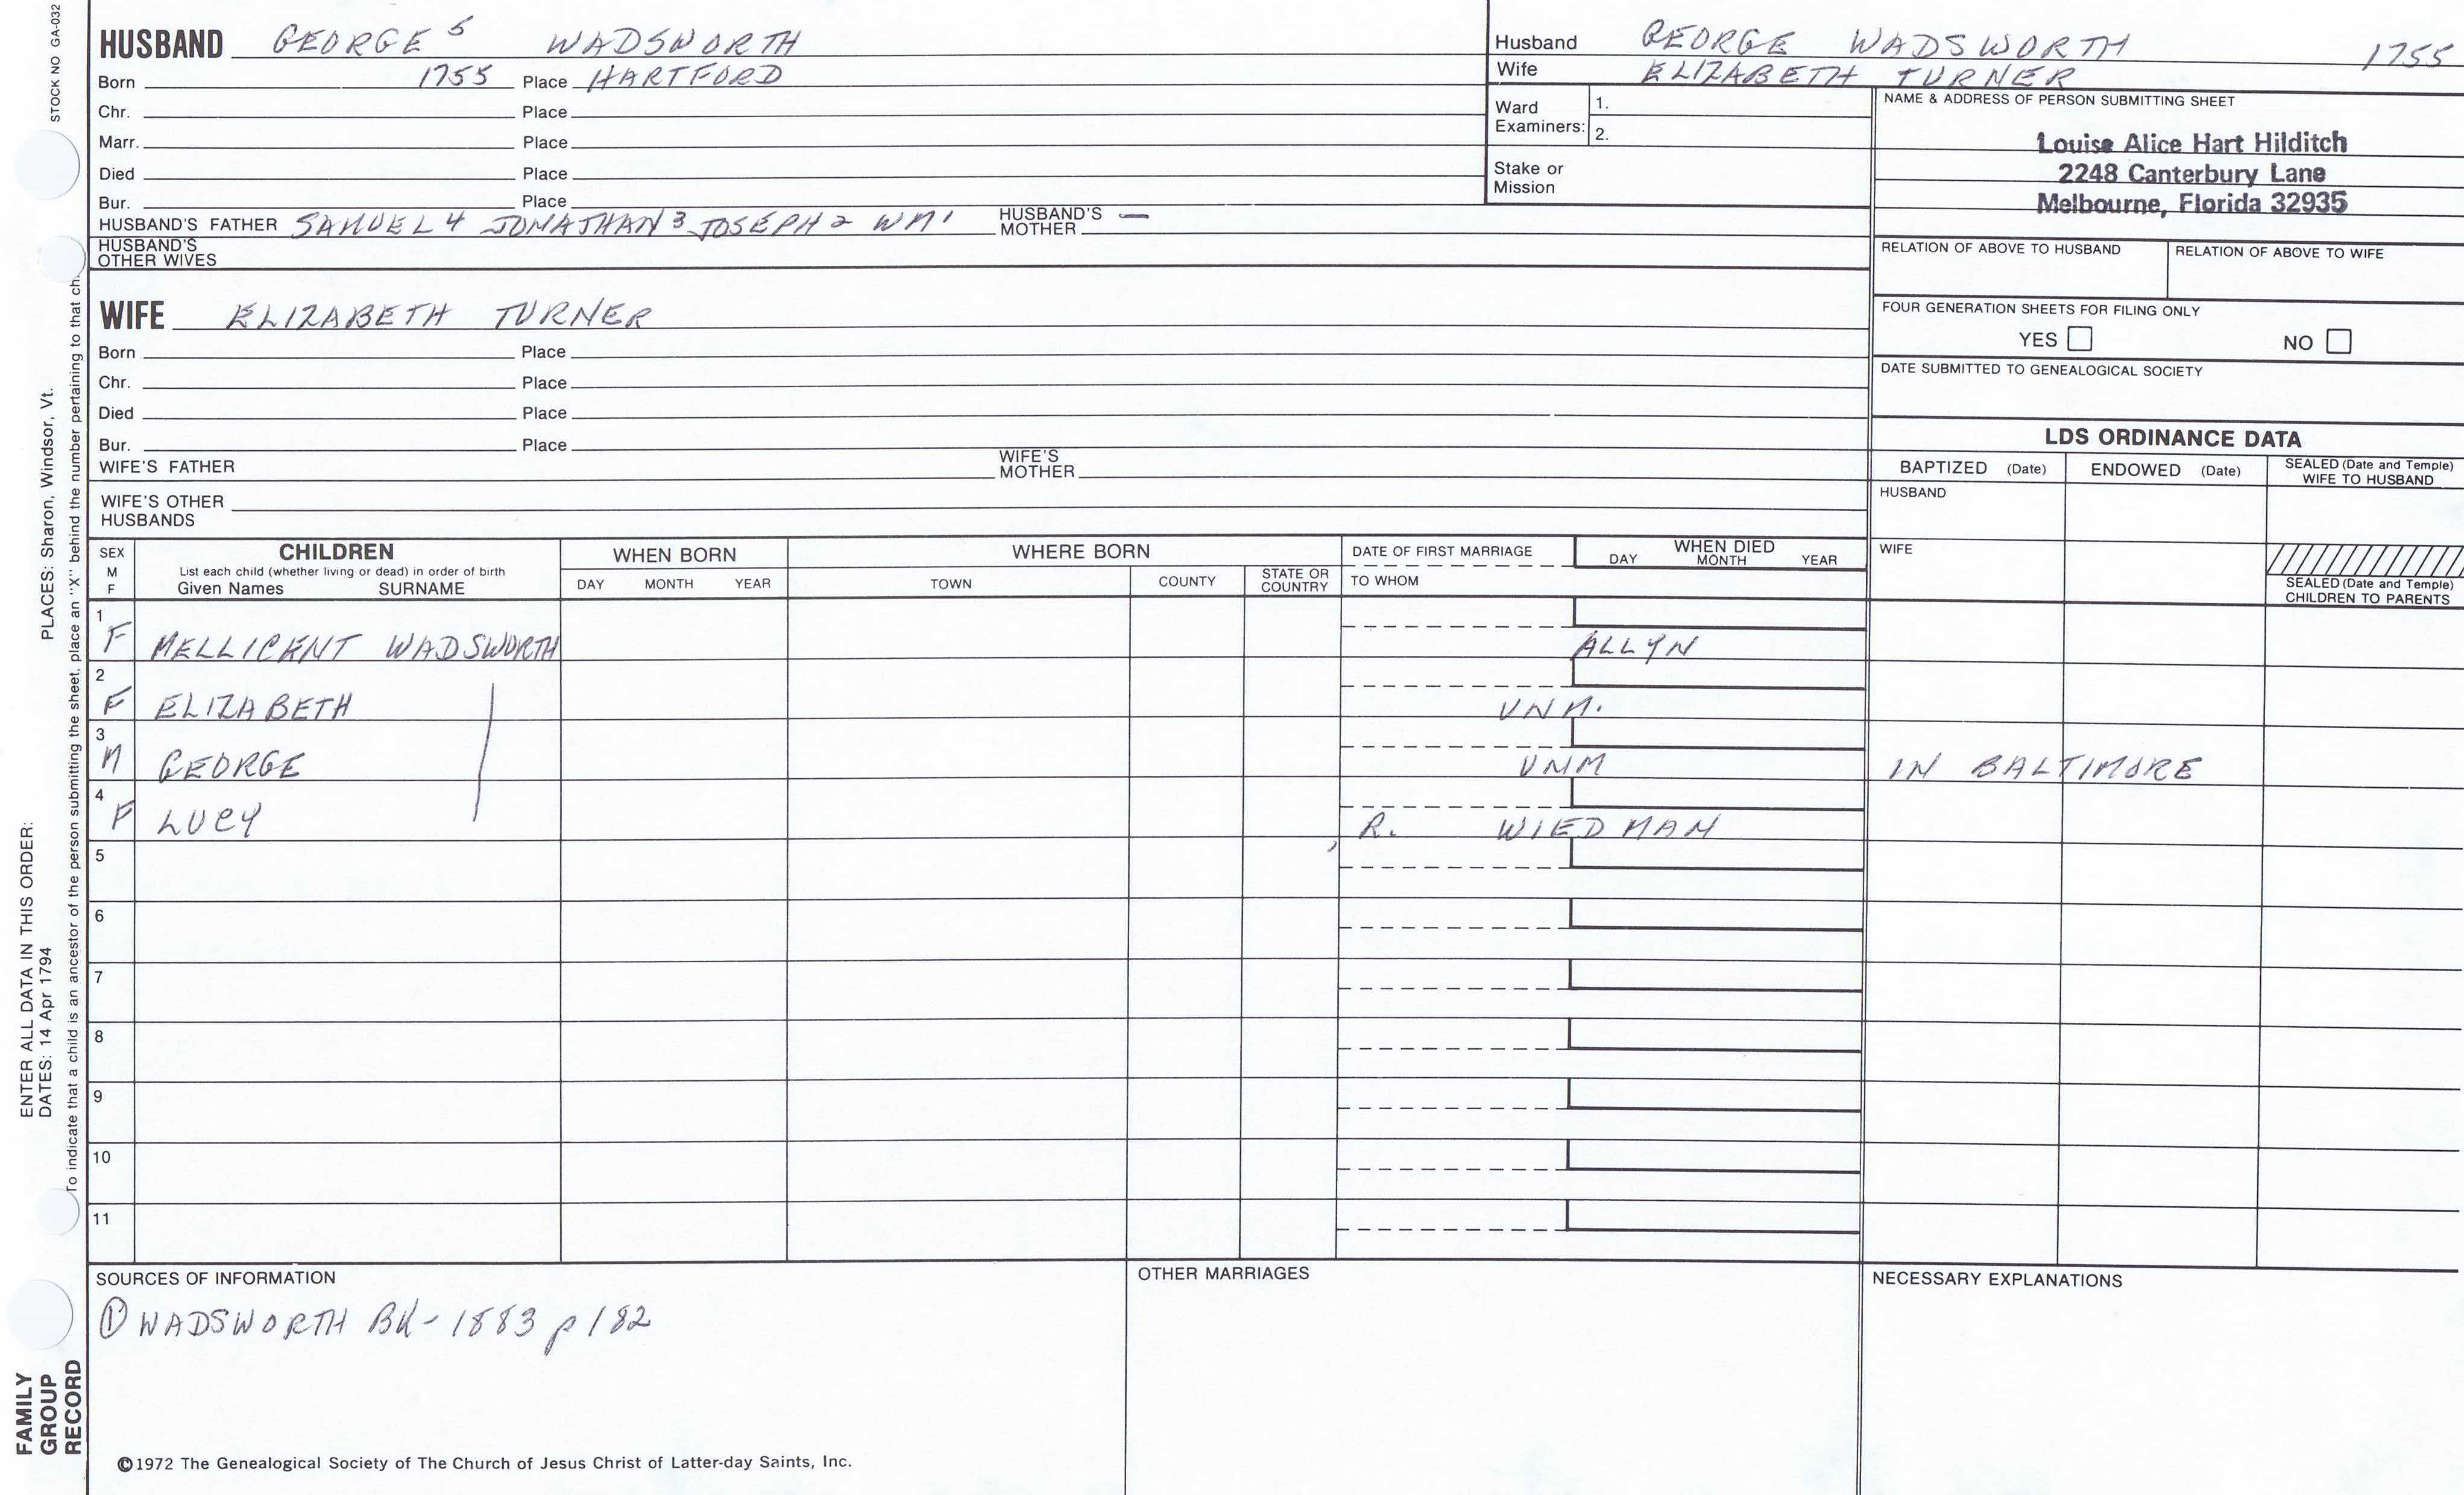 STOCK NO GA-032
HUSBAND GEORGE 5 WADSWORTH
Born 1755 Place HARTFORD
Chr. Place
Marr. Place
Died Place
Bur. Place
HUSBAND'S FATHER SAMUEL 4 JONATHAN 3 JOSEPH 2 WM 1 HUSBAND'S MOTHER —
HUSBAND'S OTHER WIVES
WIFE ELIZABETH TURNER
Born Place
Chr. Place
Died Place
Bur. Place
WIFE'S FATHER WIFE'S MOTHER
WIFE'S OTHER HUSBANDS
Husband GEORGE WADSWORTH 1755
Wife ELIZABETH TURNER
Ward Examiners: 1.
2.
Stake or Mission
NAME & ADDRESS OF PERSON SUBMITTING SHEET
Louise Alice Hart Hilditch
2248 Canterbury Lane
Melbourne, Florida 32935
RELATION OF ABOVE TO HUSBAND RELATION OF ABOVE TO WIFE
FOUR GENERATION SHEETS FOR FILING ONLY
YES NO
DATE SUBMITTED TO GENEALOGICAL SOCIETY
LDS ORDINANCE DATA
BAPTIZED (Date) ENDOWED (Date) SEALED (Date and Temple) WIFE TO HUSBAND
HUSBAND
WIFE
SEALED (Date and Temple)
CHILDREN TO PARENTS
SEX M F CHILDREN WHEN BORN WHERE BORN DATE OF FIRST MARRIAGE WHEN DIED
List each child (whether living or dead) in order of birth
Given Names SURNAME DAY MONTH YEAR TOWN COUNTY STATE OR COUNTRY TO WHOM DAY MONTH YEAR
1 F MELLICENT WADSWORTH ALLYN
2 F ELIZABETH UNM.
3 M GEORGE UNM IN BALTIMORE
4 F LUCY R. WIEDMAN
5
6
7
8
9
10
11
SOURCES OF INFORMATION
① WADSWORTH BK - 1883 p 182
OTHER MARRIAGES
NECESSARY EXPLANATIONS
©1972 The Genealogical Society of The Church of Jesus Christ of Latter-day Saints, Inc.
FAMILY GROUP RECORD
ENTER ALL DATA IN THIS ORDER:
DATES: 14 Apr 1794
PLACES: Sharon, Windsor, Vt.
To indicate that a child is an ancestor of the person submitting the sheet, place an "X" behind the number pertaining to that ch